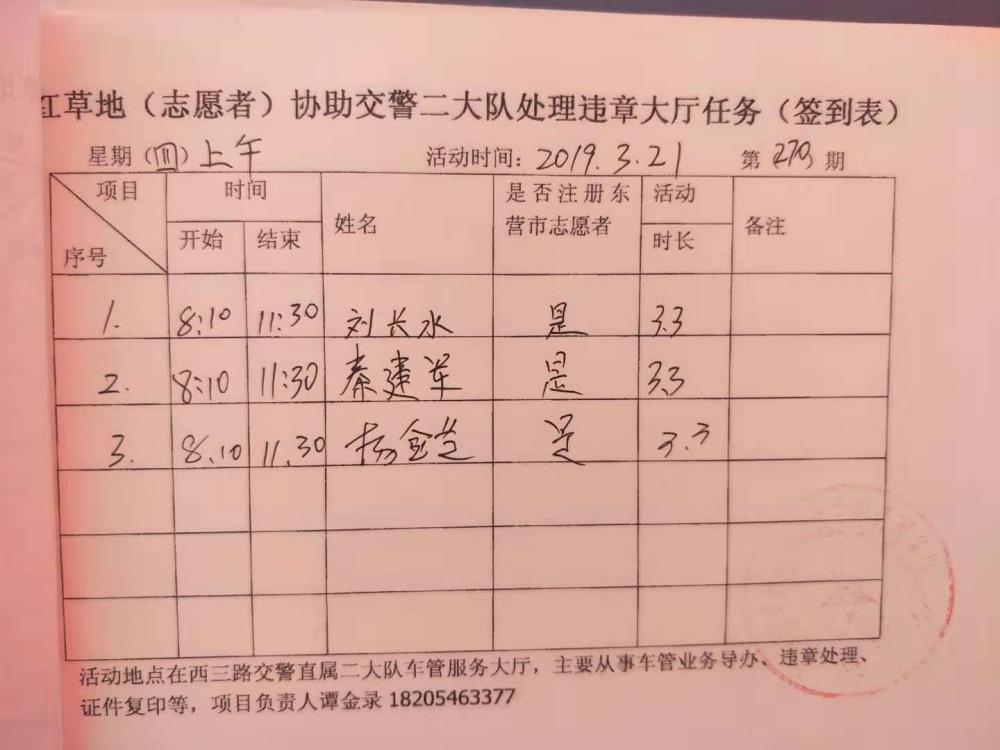 红草地（志愿者）协助交警二大队处理违章大厅任务（签到表）
星期（四）上午 活动时间：2019.3.21 第 270 期
项目 时间 姓名 是否注册东营市志愿者 活动时长 备注
序号 开始 结束
1. 8:10 11:30 刘长水 是 3.3
2. 8:10 11:30 秦建军 是 3.3
3. 8.10 11.30 杨金芝 是 3.3
活动地点在西三路交警直属二大队车管服务大厅，主要从事车管业务导办、违章处理、
证件复印等，项目负责人谭金录 18205463377